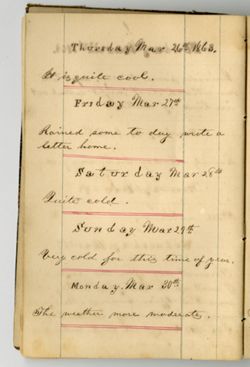 Thursday Mar 26th 1863.
It is quite cool.
Friday Mar 27th
Rained some to day wrote a
letter home.
Saturday Mar 28th
Quite cold.
Sunday Mar 29th
Very cold for this time of year.
Monday. Mar 30th
The weather more moderate.